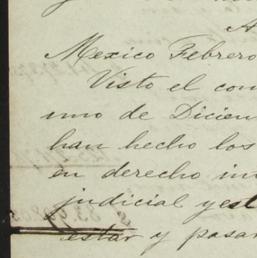 A
Mexico Febrero
Visto el con
uno de Dicien
han hecho los
en derecho in
judicial y est
estar y pasar